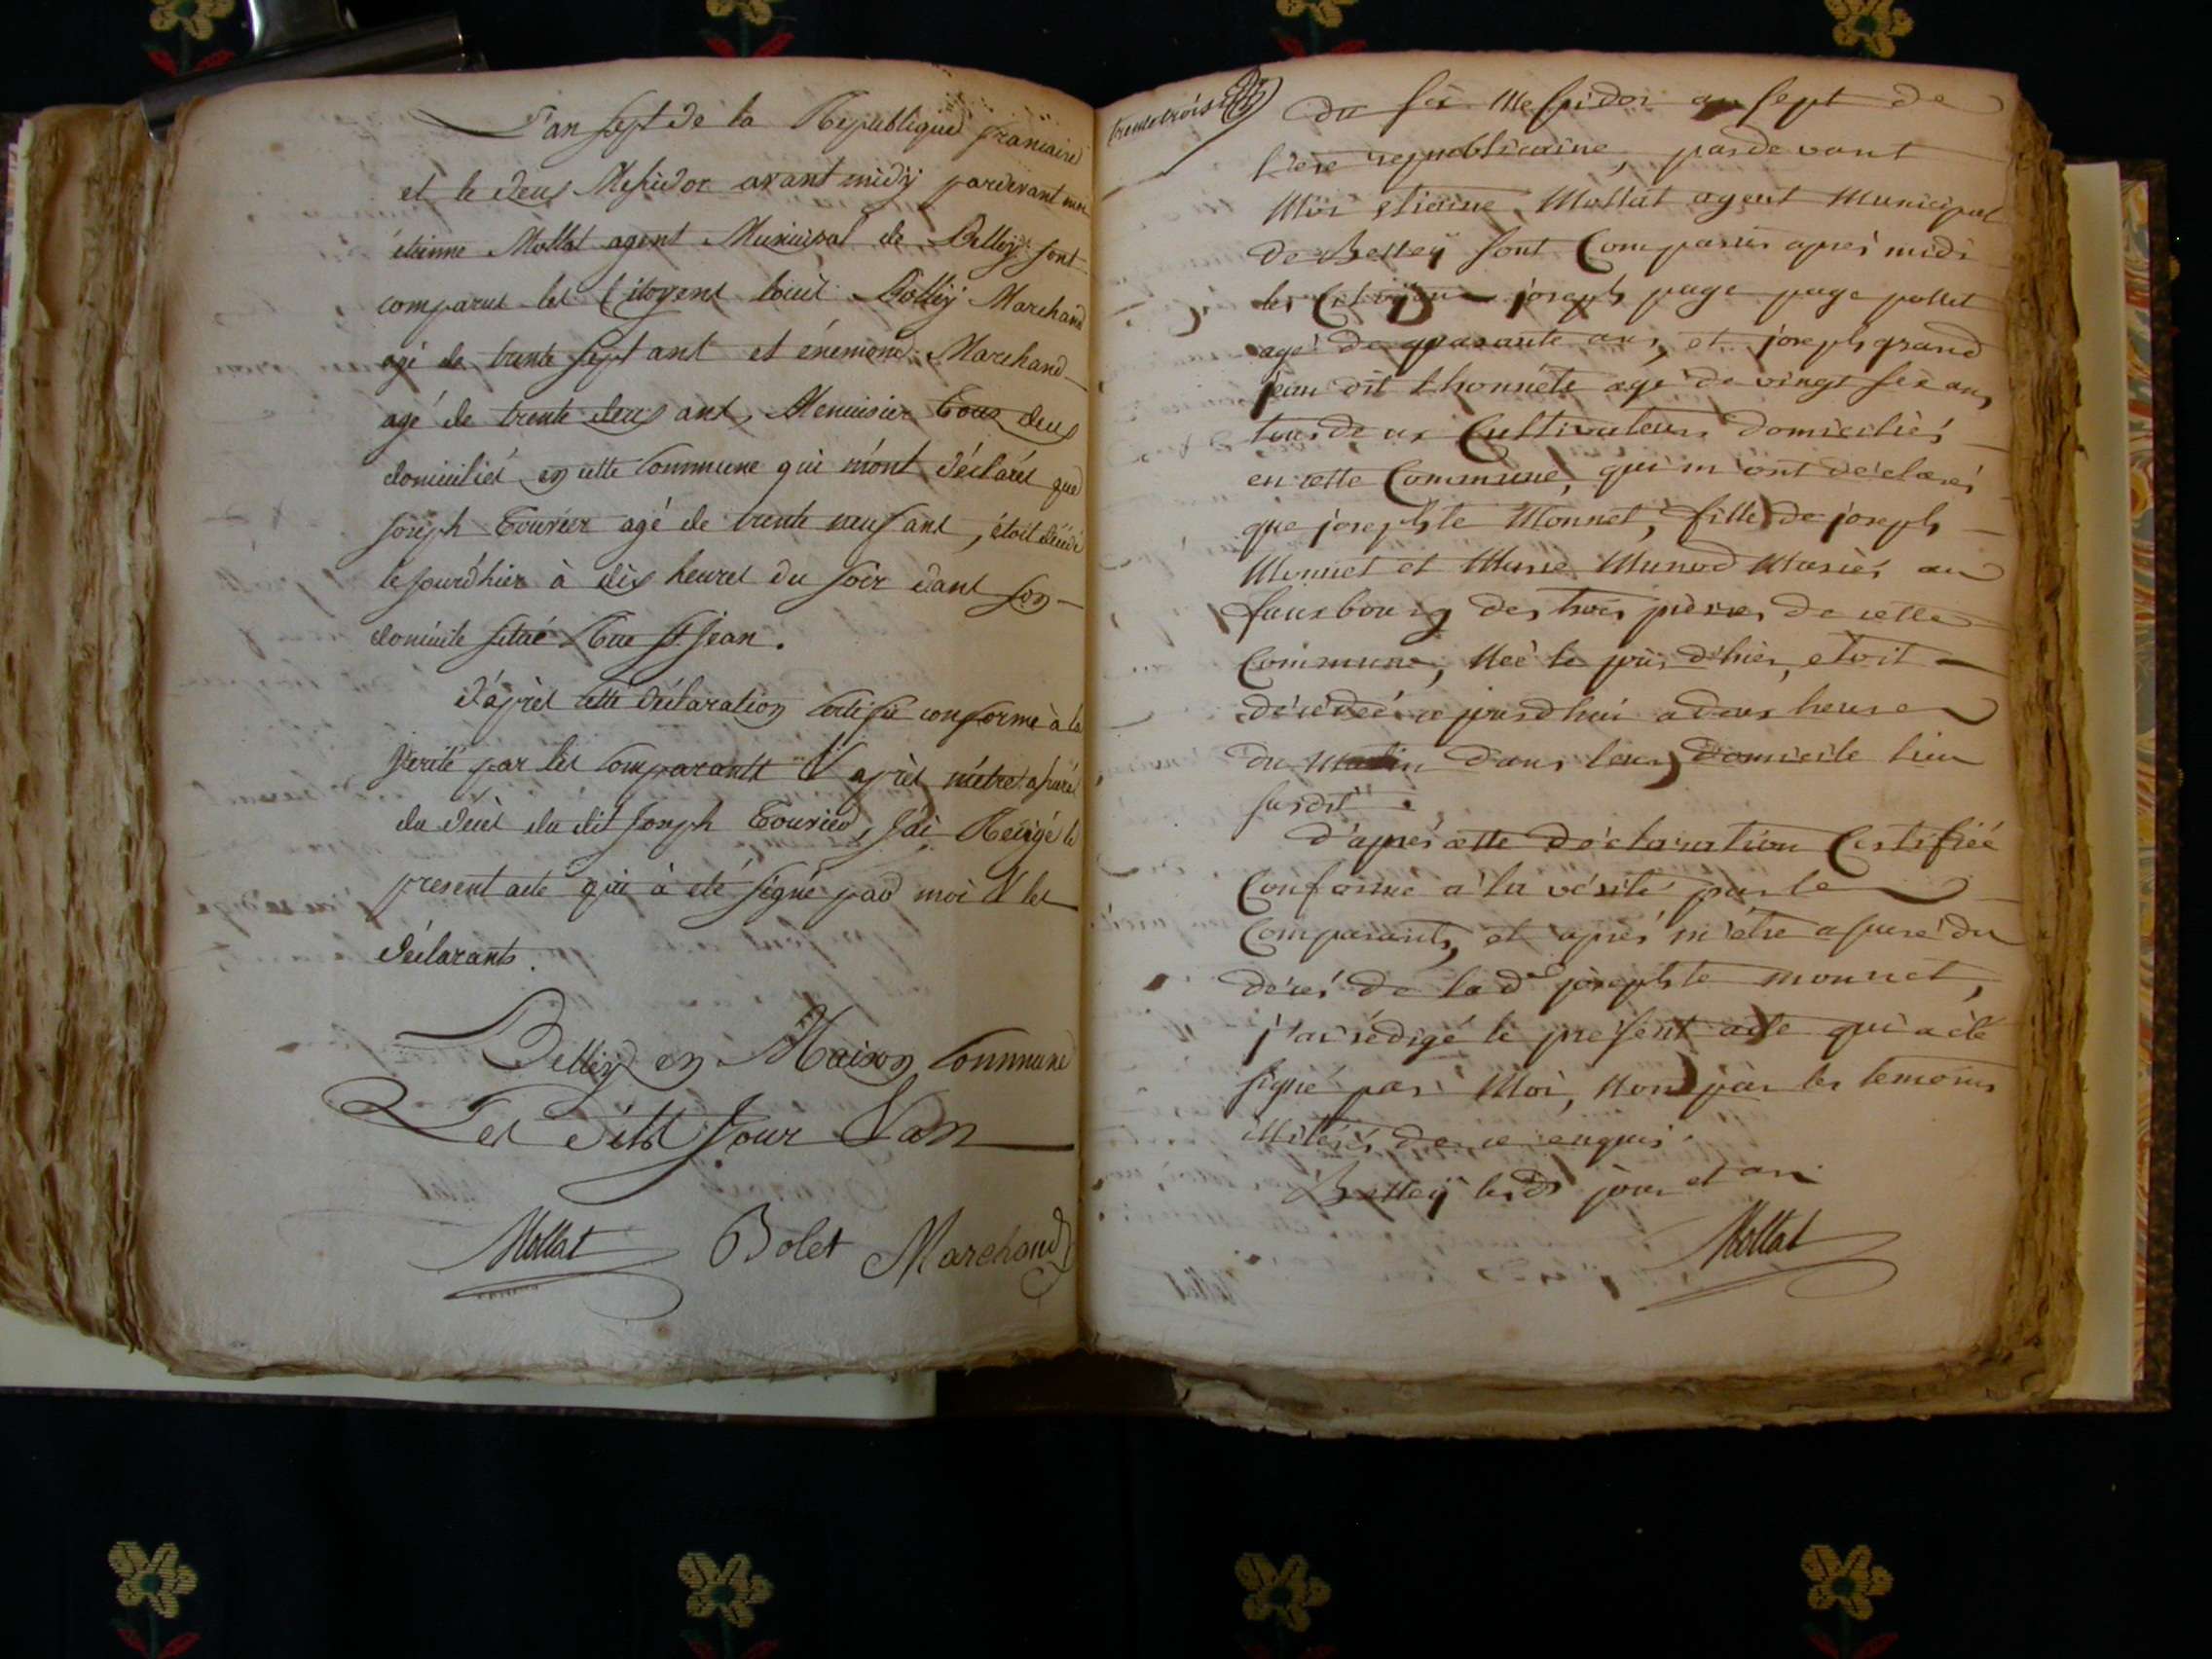 L'an sept de la Republique francaise
et le deux Messidor avant midÿ pardevant moi
étienne Mollat agent Municipal de Belleÿ sont
comparus les Citoyens louis Bolleÿ Marchand
agé de trente sept ans et énemond Marchand
agé de trente deux ans, Menuisier tous deux
domiciliés en cette Commune qui m'ont déclarés que
Joseph Tournier agé de trente neuf ans, étoit décédé
le jourd'hier à dix heures du soir dans son
domicile situé Rue St Jean.
d'après cette déclaration certifié conforme à la
Verité par les Comparants & après m'être assuré
du décès du dit Joseph Tournier, j'ai Redigé le
present acte qui à été signé par moi & les
déclarants.
Belleÿ en Maison Commune
Les dits Jour & an
Mollat Bolet Marchand
trente trois
du six Messidor an sept de
l'ère republicaine, pardevant
Moi etienne Mollat agent Municipal
de Belleÿ sont Comparus après midi
les Citoÿens joseph page page pollet
agé de quarante ans, et joseph grand
jean dit l'honnête agé de vingt six ans
tous deux Cultivateurs domiciliés
en cette Commune, qui m'ont déclarés
que josephte Monnet, fille de joseph
Monnet et Marie Munod Mariés au
fauxbourg des trois pierres de cette
Commune, Née le jour d'hier, étoit
décédée ce jourdhui a deux heures
du Matin dans leur domicile lieu
susdit.
d'après cette déclaration Certifiée
Conforme à la vérité par les
Comparants, et après m'être assuré du
décés de lad josephte monnet,
j'ai rédigé le present acte qui a été
signé par Moi, Non par les temoins
illiterés de ce enquis.
Belleÿ lesd jour et an
Mollat